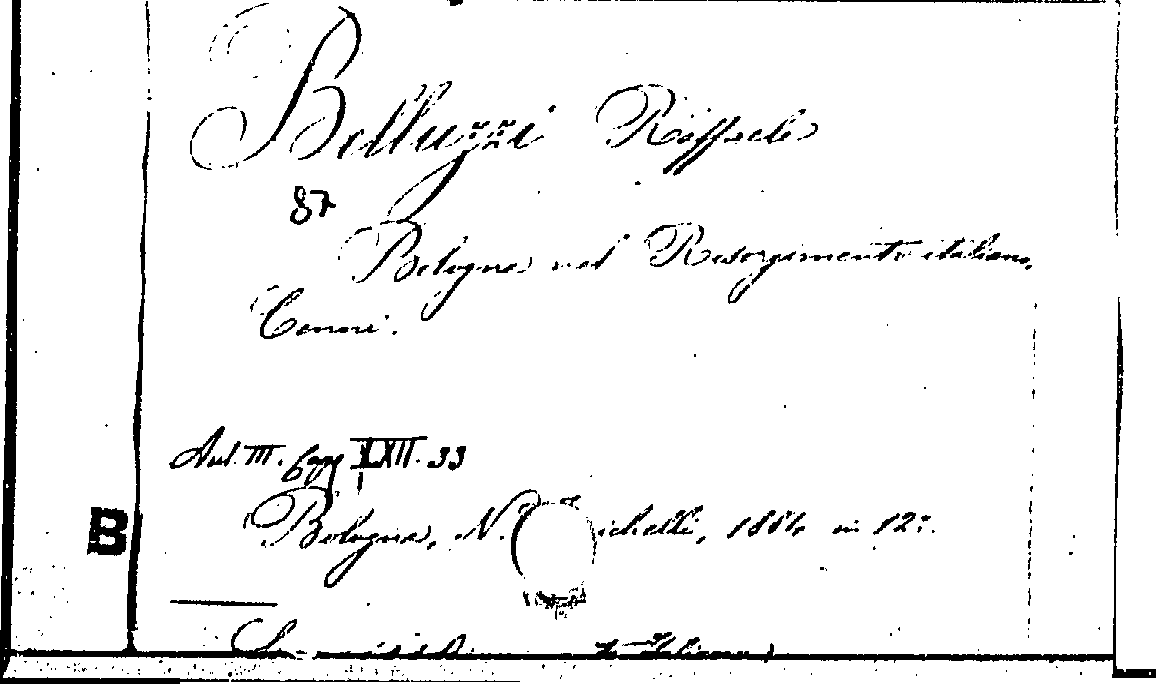 Belluzzi Raffaele
87
Bologna nel Risorgimento italiano,
Cenni.
Aul. III. Capp. LXII. 33
B
Bologna, N. ichelli, 1884 in 12º.